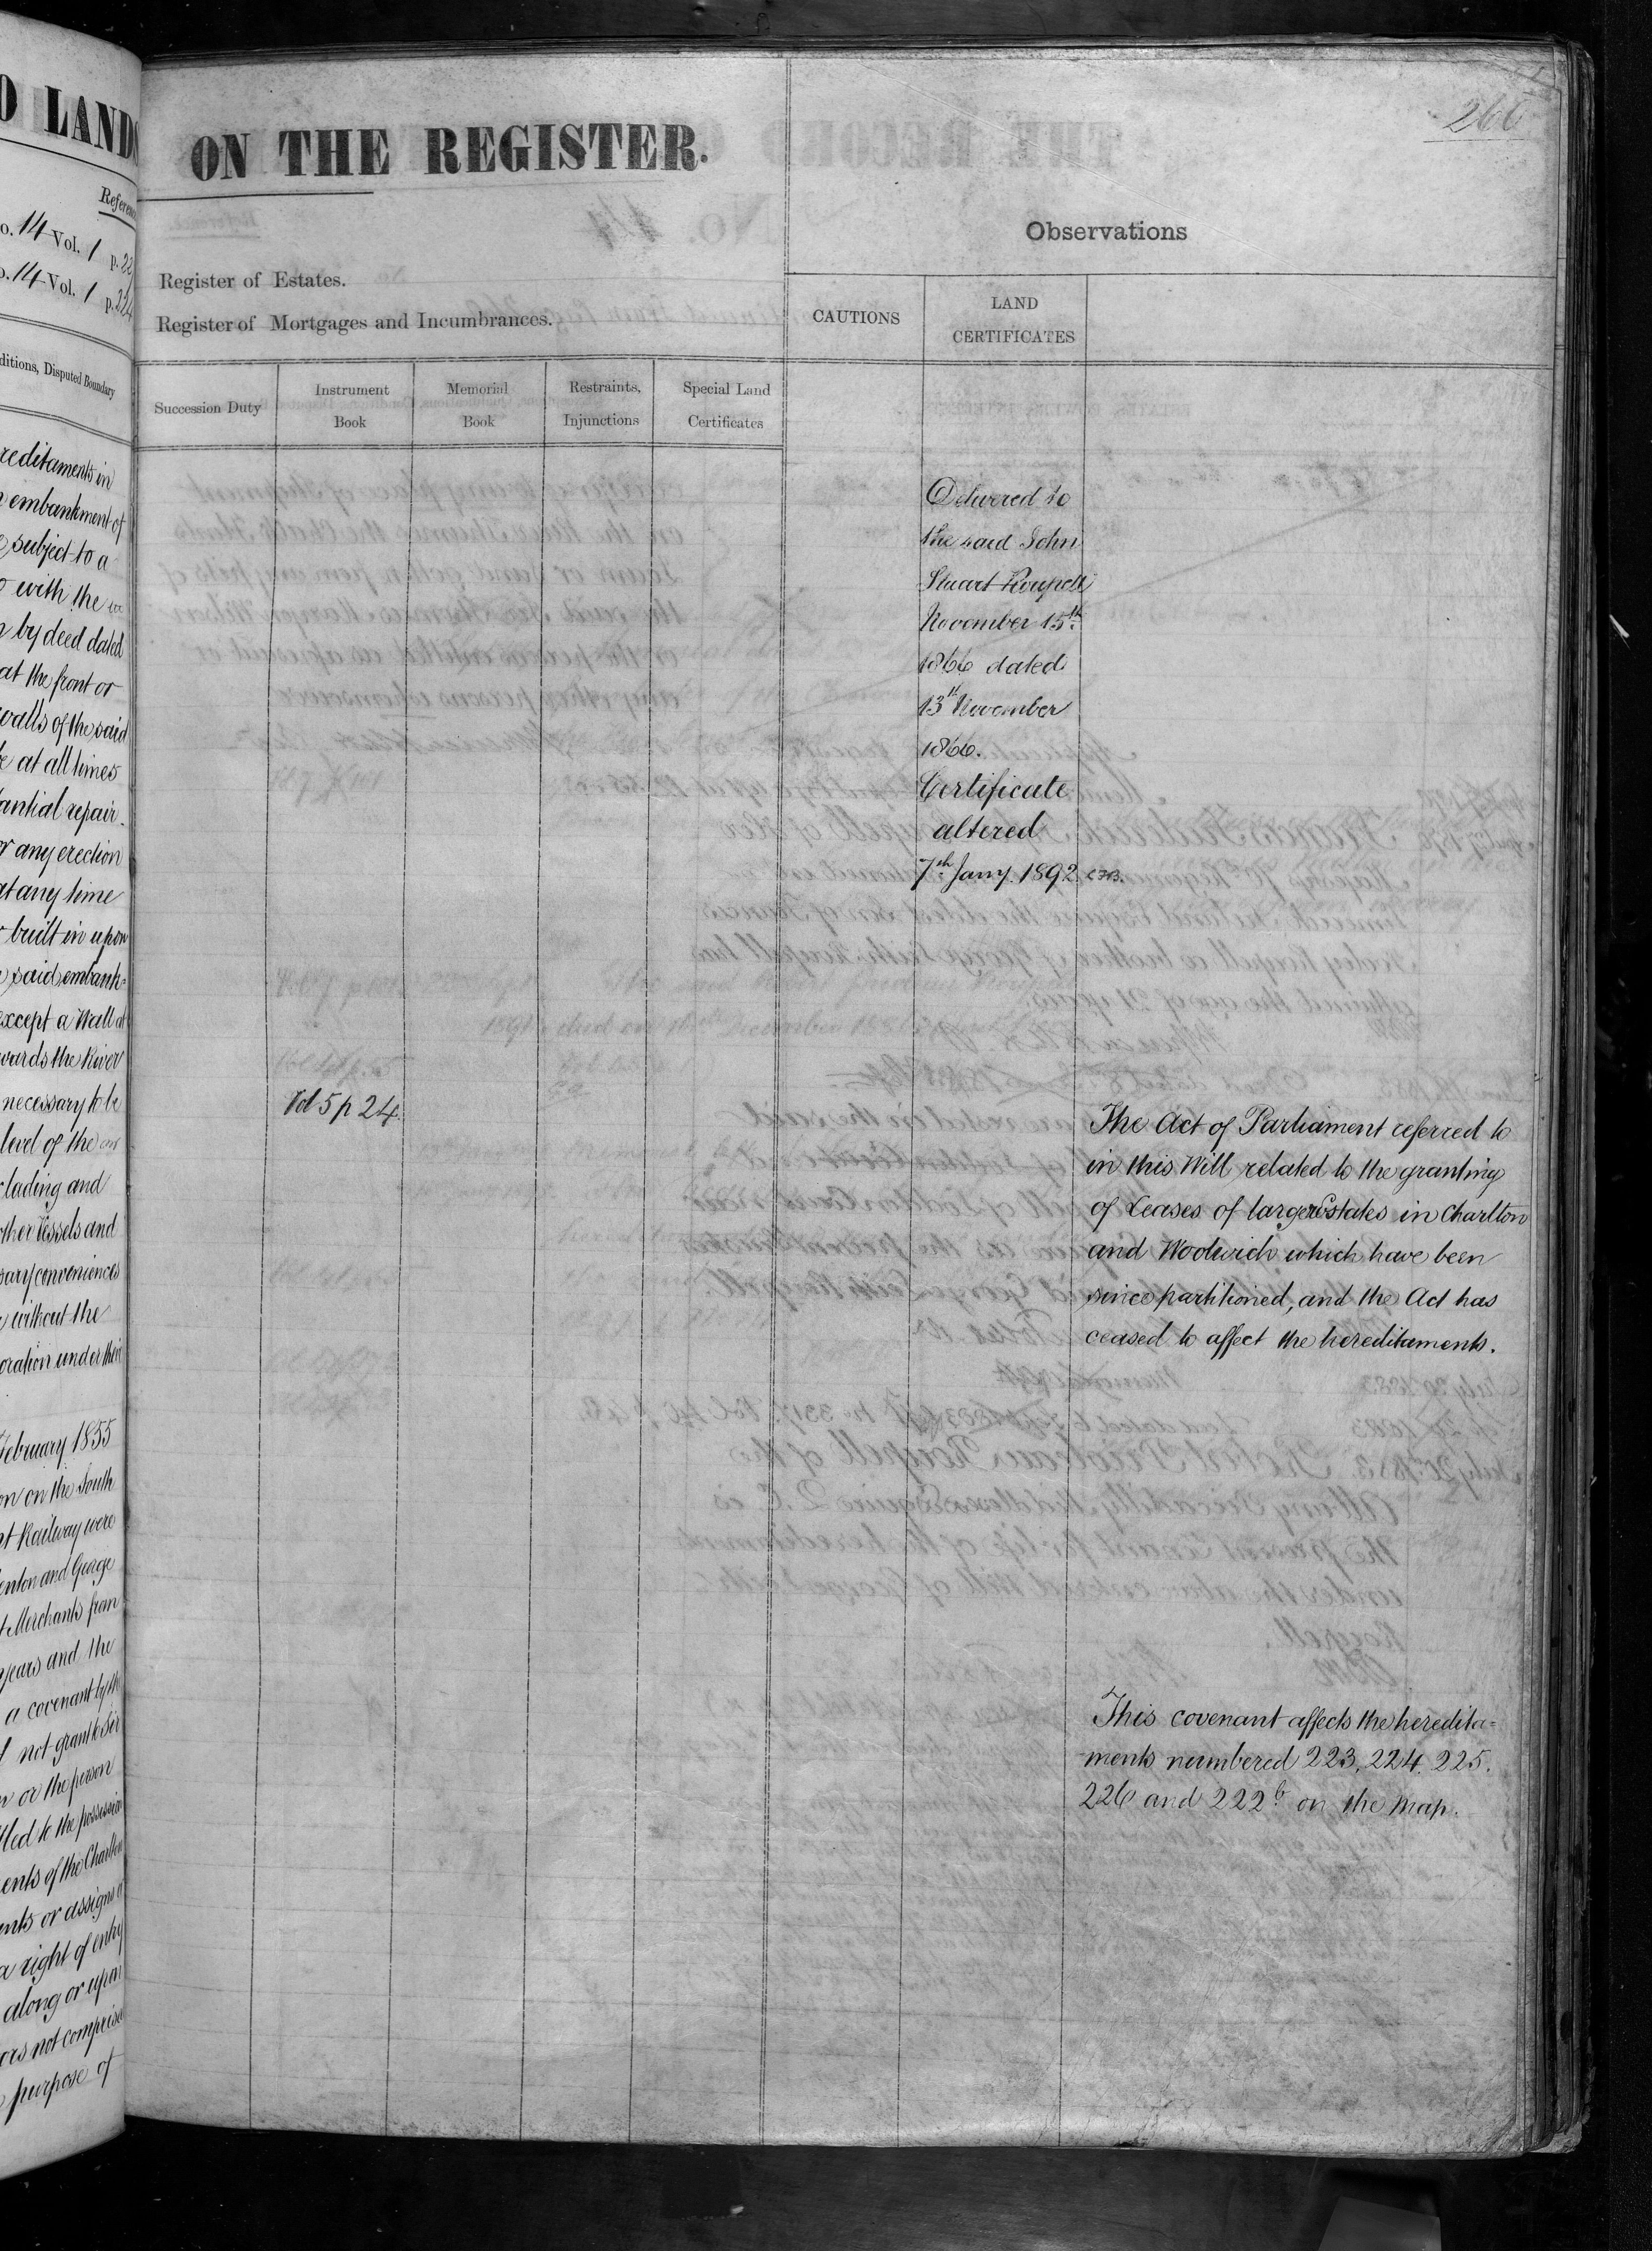 O LANDS
Reference
o. 14 Vol. 1 p. 22
o. 14 Vol. 1 p. 224
ditions, Disputed Boundary
reditaments in
embankment of
subject to a
with the
by deed dated
at the front or
walls of the said
e at all times
antial repair.
or any erection
at any time
built in upon
said embank=
except a Wall at
wards the River
necessary to be
level of the
lading and
other Vessels and
sary conveniences
without the
oration under their
February 1855
on on the South
nt Railway were
enton and George
t Merchants from
years and the
a covenant by the
not grant to Sir
n or the person
tled to the possession
ents of the Charlton
ents or assigns or
a right of entry
along or upon
ors not comprised
purpose of
ON THE REGISTER.
266
Observations
Register of Estates.
Register of Mortgages and Incumbrances.
CAUTIONS
LAND
CERTIFICATES
Succession Duty
Instrument
Book
Memorial
Book
Restraints,
Injunctions
Special Land
Certificates
Delivered to
the said John
Stuart Roupell
November 15th
1866 dated
13th November
1866.
Certificate
altered
7th Jany. 1892
Vol 5 p 24.
The Act of Parliament referred to
in this Will related to the granting
of Leases of larger Estates in Charlton
and Woolwich which have been
since partitioned, and the Act has
ceased to affect the hereditaments.
This covenant affects the heredita=
ments numbered 223, 224, 225.
226 and 222b on the Map.